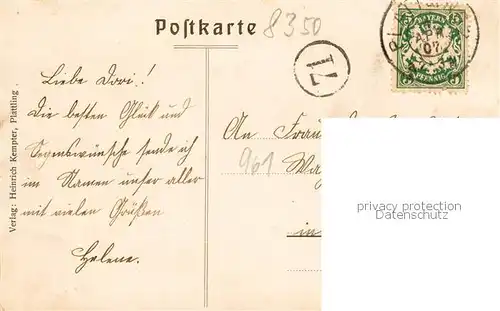 Postkarte
8350
71
BAYERN
5 PFENNIG 5
APR
07
Liebe Dori!
Die besten Glück und
Segenswünsche sende ich
im Namen unser aller
mit vielen Grüßen
Helene.
An Frau
961
in
privacy protection
Datenschutz
Verlag: Heinrich Kempter, Plattling